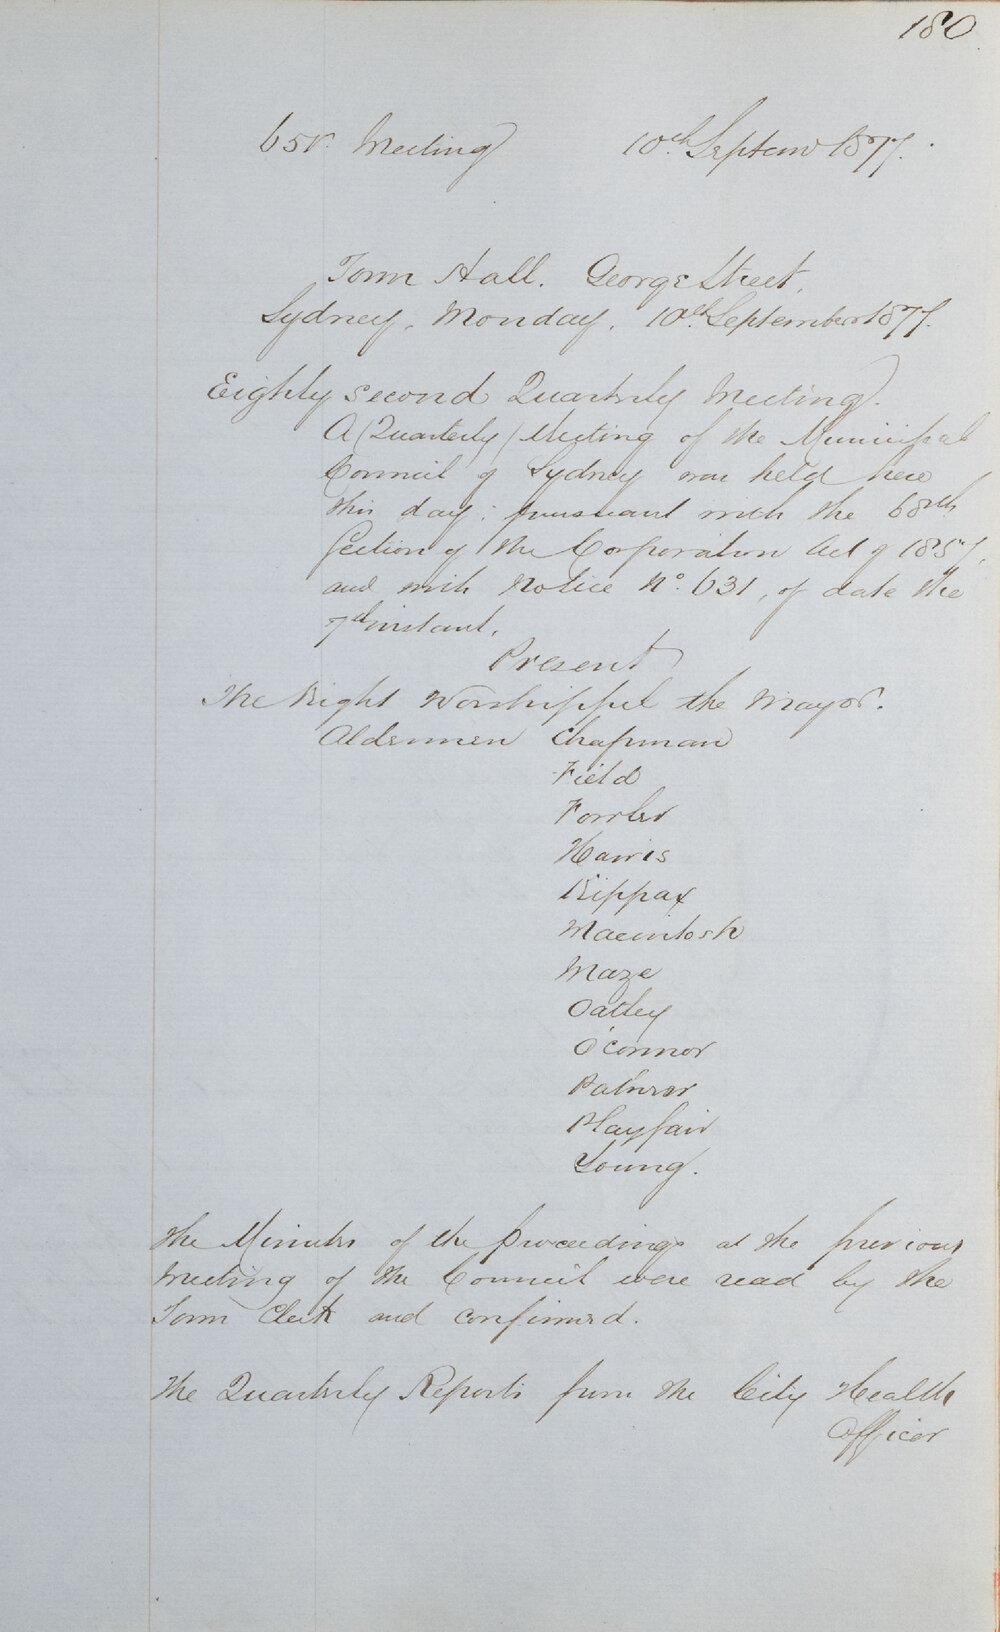 180
651. Meeting 10th Septem 1877.
Town Hall. George Street,
Sydney, Monday, 10th September 1877.
Eighty second Quarterly Meeting.
A (Quarterly) Meeting of the Municipal
Council of Sydney was held here
this day; pursuant with the 68th
Section of the Corporation Act of 1857,
and with Notice No. 631, of date the
7th instant.
Present
The Right Worshipful the Mayor.
Aldermen Chapman
Field
Fowler
Harris
Kippax
Macintosh
Maze
Oatley
O'Connor
Palmer
Playfair
Young.
The Minutes of the Proceedings at the previous
Meeting of the Council were read by the
Town Clerk and confirmed.
The Quarterly Reports from the City Health
Officer